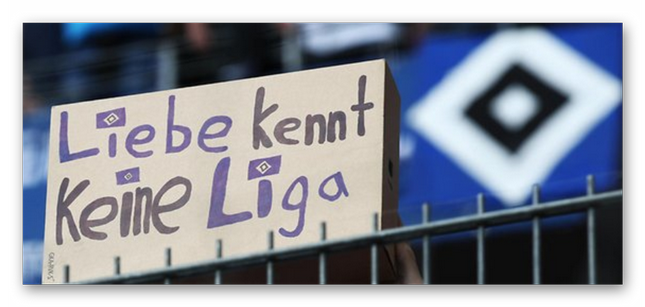 Liebe kennt
Keine Liga